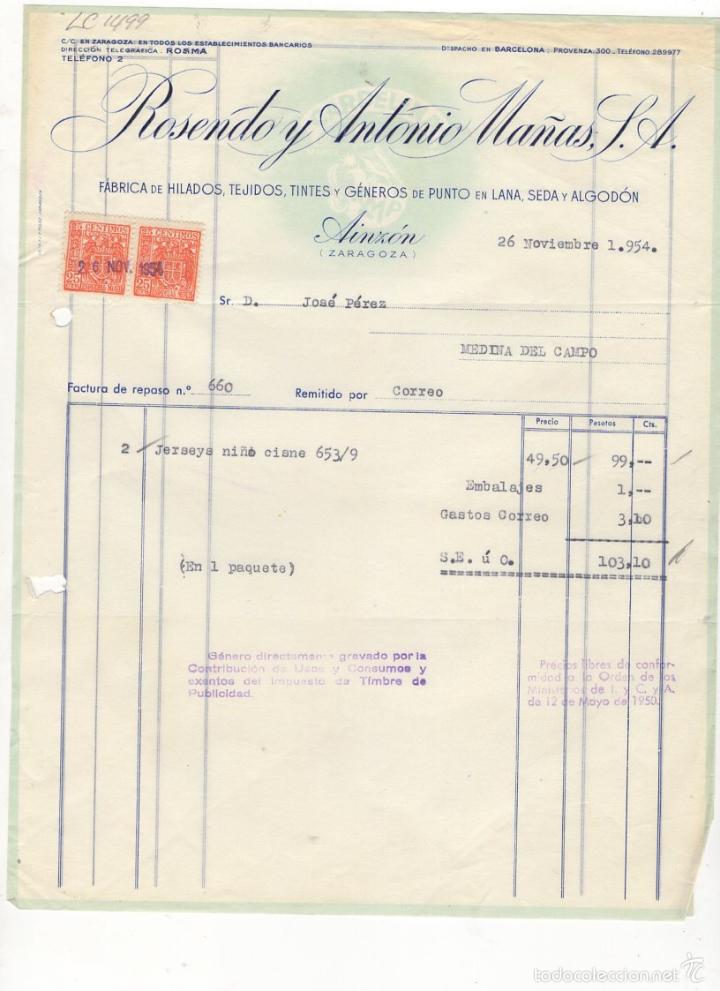 LC 1499
C/C. EN ZARAGOZA: EN TODOS LOS ESTABLECIMIENTOS BANCARIOS
DIRECCIÓN TELEGRÁFICA: ROSMA
TELÉFONO 2
DESPACHO EN BARCELONA: PROVENZA, 300.-TELÉFONO 289977
Rosendo y Antonio Mañas, S. A.
FÁBRICA DE HILADOS, TEJIDOS, TINTES Y GÉNEROS DE PUNTO EN LANA, SEDA Y ALGODÓN
Ainzón
(ZARAGOZA)
26 Noviembre 1.954.
5 CENTIMOS 5 CENTIMOS
26 NOV. 1954
25 25
Sr. D. José Pérez
MEDINA DEL CAMPO
Factura de repaso n.º 660 Remitido por Correo
Precio Pesetas Cts.
2 Jerseys niño cisne 653/9 49,50 99,--
Embalajes 1,--
Gastos Correo 3,10
(En 1 paquete) S.E. ú O. 103,10
Género directamente gravado por la
Contribución de Usos y Consumos y
exentos del Impuesto de Timbre de
Publicidad.
Precios libres de confor-
midad a la Orden de los
Ministerios de I. y C. y A.
de 12 de Mayo de 1950.
todocoleccion.net